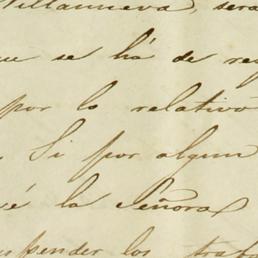 Villanueva, será
que se há de re
por lo relativo
Si por algun
é la Señora
spender los tra